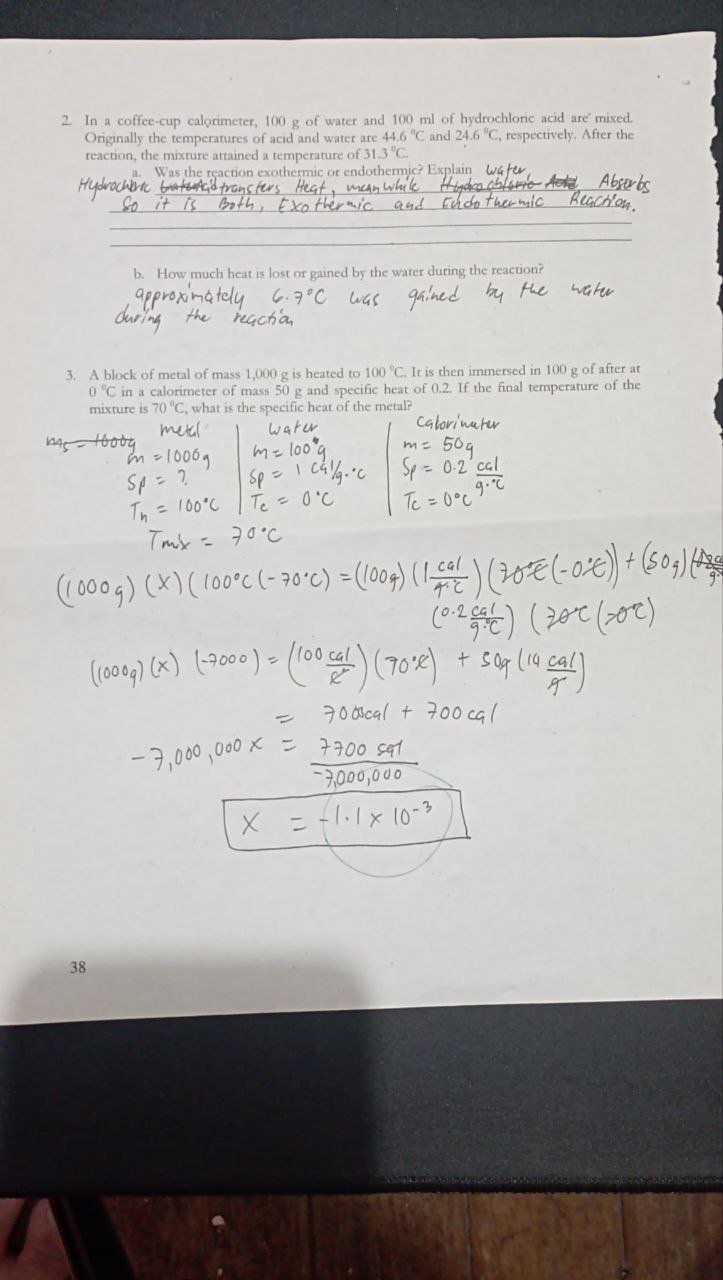 2. In a coffee-cup calorimeter, 100 g of water and 100 ml of hydrochloric acid are mixed.
Originally the temperatures of acid and water are 44.6 °C and 24.6 °C, respectively. After the
reaction, the mixture attained a temperature of 31.3 °C.
a. Was the reaction exothermic or endothermic? Explain water,
Hydrochloric Acid transfers Heat, meanwhile Hydrochloric Acid Absorbs
So it is Both, Exothermic and Endothermic Reaction.
b. How much heat is lost or gained by the water during the reaction?
approximately 6.7°C was gained by the water
during the reaction
3. A block of metal of mass 1,000 g is heated to 100 °C. It is then immersed in 100 g of after at
0 °C in a calorimeter of mass 50 g and specific heat of 0.2. If the final temperature of the
mixture is 70 °C, what is the specific heat of the metal?
metal water Calorimeter
= 1000g
m = 1000g m = 100g m = 50g
Sp = ? Sp = 1 cal/g·°C Sp = 0.2 cal/g·°C
Th = 100°C Tc = 0°C Tc = 0°C
Tmix = 70°C
(1000g) (x) (100°C (-70°C) = (100g) (1 cal/g·°C) (70°C (-0°C)) + (50g)
(0.2 cal/g·°C) (70°C (-0°C)
(1000g) (x) (-7000) = (100 cal/°C) (70°C) + 50g (14 cal/g)
= 7000cal + 700 cal
-7,000,000 x = 7700 cal
-7,000,000
x = -1.1 x 10-3
38